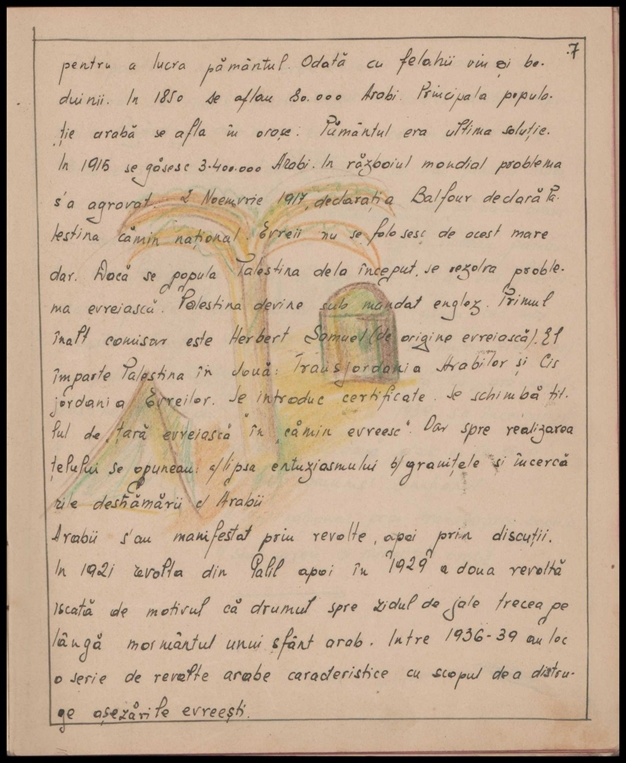 7
pentru a lucra pământul. Odată cu felahii vin și be-
duinii. In 1850 se aflau 80.000 Arabi. Principala popula-
ție arabă se afla în orașe. Pământul era ultima soluție.
In 1915 se găsesc 3.400.000 Arabi. In războiul mondial problema
s'a agravat. 2 Noemvrie 1917, declarația Balfour declară Pa-
lestina cămin național. Evreii nu se folosesc de acest mare
dar. Dacă se popula Palestina dela început, se rezolva proble-
ma evreiască. Palestina devine sub mandat englez. Primul
înalt comisar este Herbert Samuel (de origine evreiască). El
împarte Palestina în două: Transjordania Arabilor și Cis
jordania Evreilor. Se introduc certificate. Se schimbă tit-
lul de "țară evreiască" în "cămin evreesc". Dar spre realizarea
țelului se opuneau: a/lipsa entuziasmului b/granițele și încercă
rile destrămării c/ Arabii
Arabii s'au manifestat prin revolte, apoi prin discuții.
In 1921 revolta din apoi în 1929 a doua revoltă
iscată de motivul că drumul spre zidul de jale trecea pe
lângă mormântul unui sfânt arab. Intre 1936-39 au loc
o serie de revolte arabe caracteristice cu scopul de a distru-
ge așezările evreești.